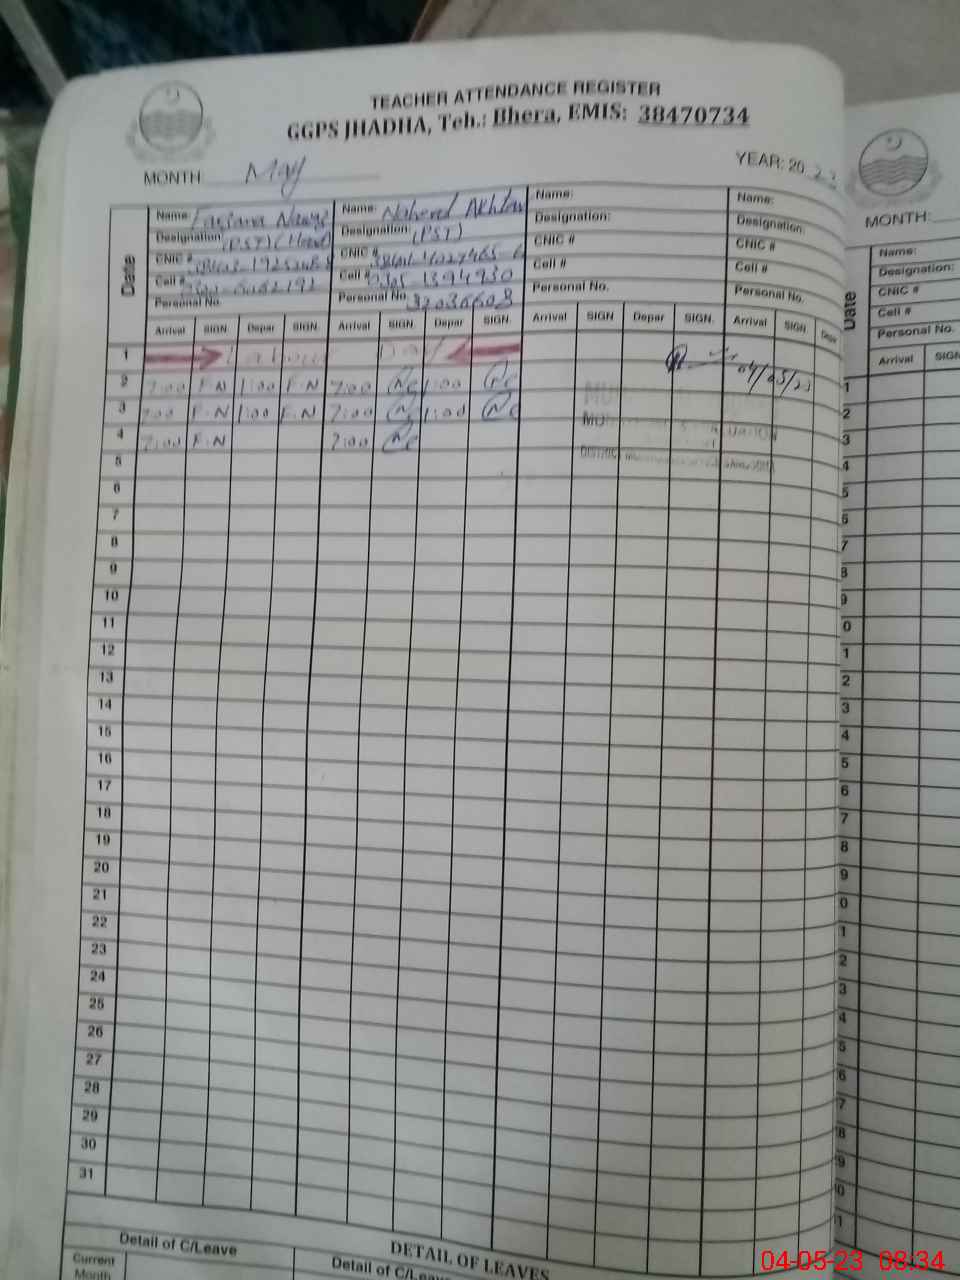 TEACHER ATTENDANCE REGISTER
GGPS JHADHA, Teh.: Bhera, EMIS: 38470734
MONTH: May YEAR: 2023
Date
Name: Farzana Name: Naheed Akhtar Name: Name:
Designation (PST) (Head) Designation: (PST) Designation: Designation:
CNIC # CNIC # CNIC # CNIC #
Cell # Cell # 0305-1394930 Cell # Cell #
Personal No. Personal No. 32036608 Personal No. Personal No.
Arrival SIGN. Depar SIGN. Arrival SIGN. Depar SIGN. Arrival SIGN Depar SIGN. Arrival SIGN. Depar
1 Labour Day 04/05/23
2 7:00 F.N 1:00 F.N 7:00 1:00
3 7:00 F.N 1:00 F.N 7:00 1:00
4 7:00 F.N 7:00
5
6
7
8
9
10
11
12
13
14
15
16
17
18
19
20
21
22
23
24
25
26
27
28
29
30
31
DETAIL OF LEAVES
Detail of C/Leave Detail of C/Leave
Current
Month
MONTH:
Date
Name:
Designation:
CNIC #
Cell #
Personal No.
Arrival SIGN
1
2
3
4
5
6
7
8
9
0
1
2
3
4
5
6
7
8
9
0
1
2
3
4
5
6
7
8
9
0
1
04-05-23 08:34